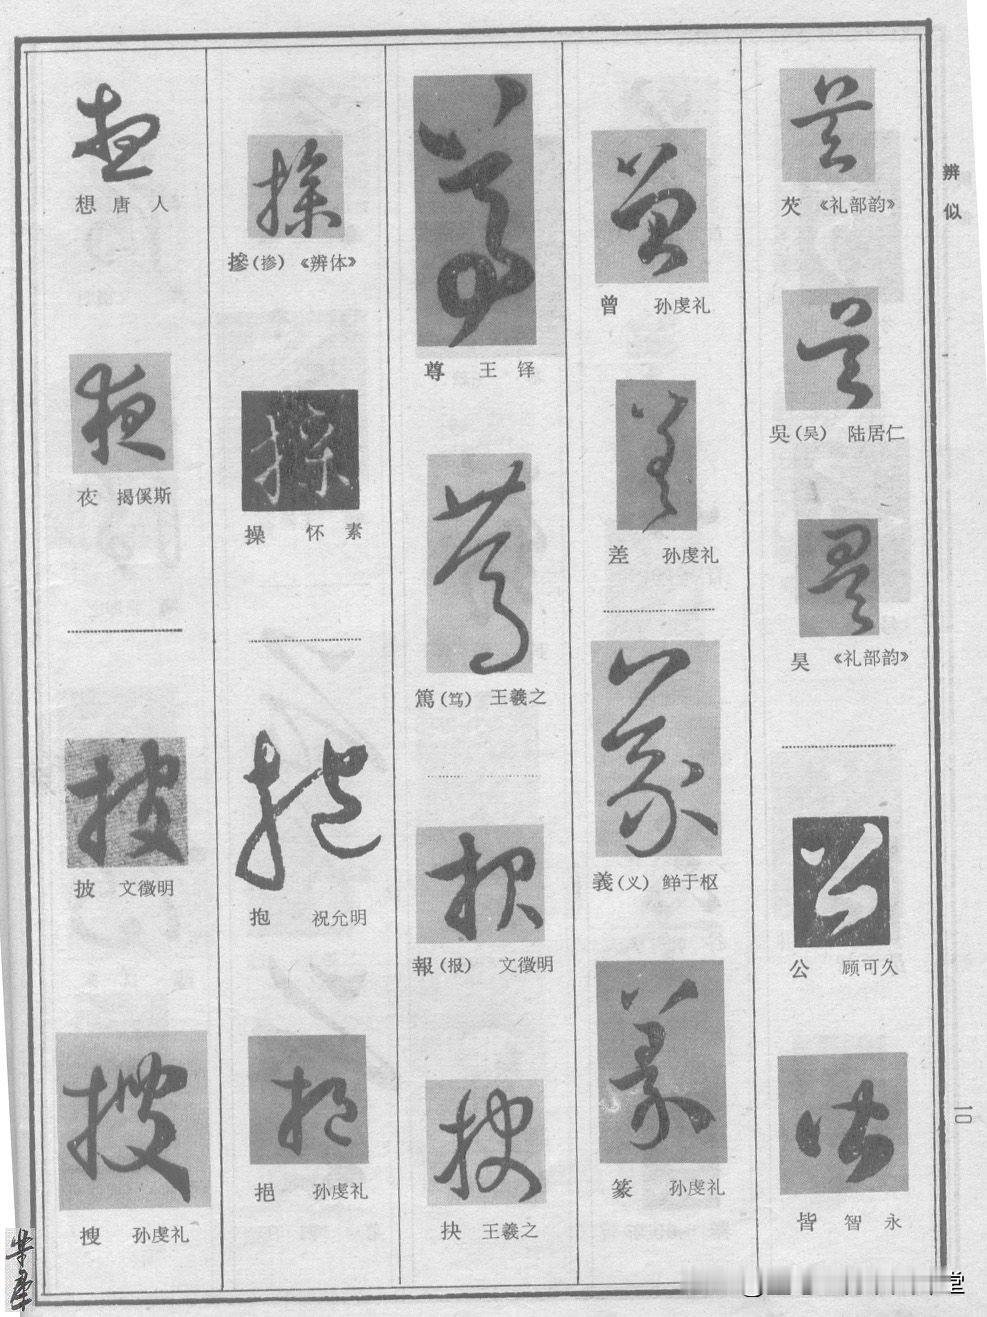 辨似
炗 《礼部韵》
吳(吴) 陆居仁
昊 《礼部韵》
公 顾可久
皆 智永
曾 孙虔礼
差 孙虔礼
義(义) 鲜于枢
篆 孙虔礼
尊 王铎
篤(笃) 王羲之
報(报) 文徵明
抉 王羲之
摻(掺) 《辨体》
操 怀素
抱 祝允明
挹 孙虔礼
想 唐人
夜 揭傒斯
披 文徵明
搜 孙虔礼
10